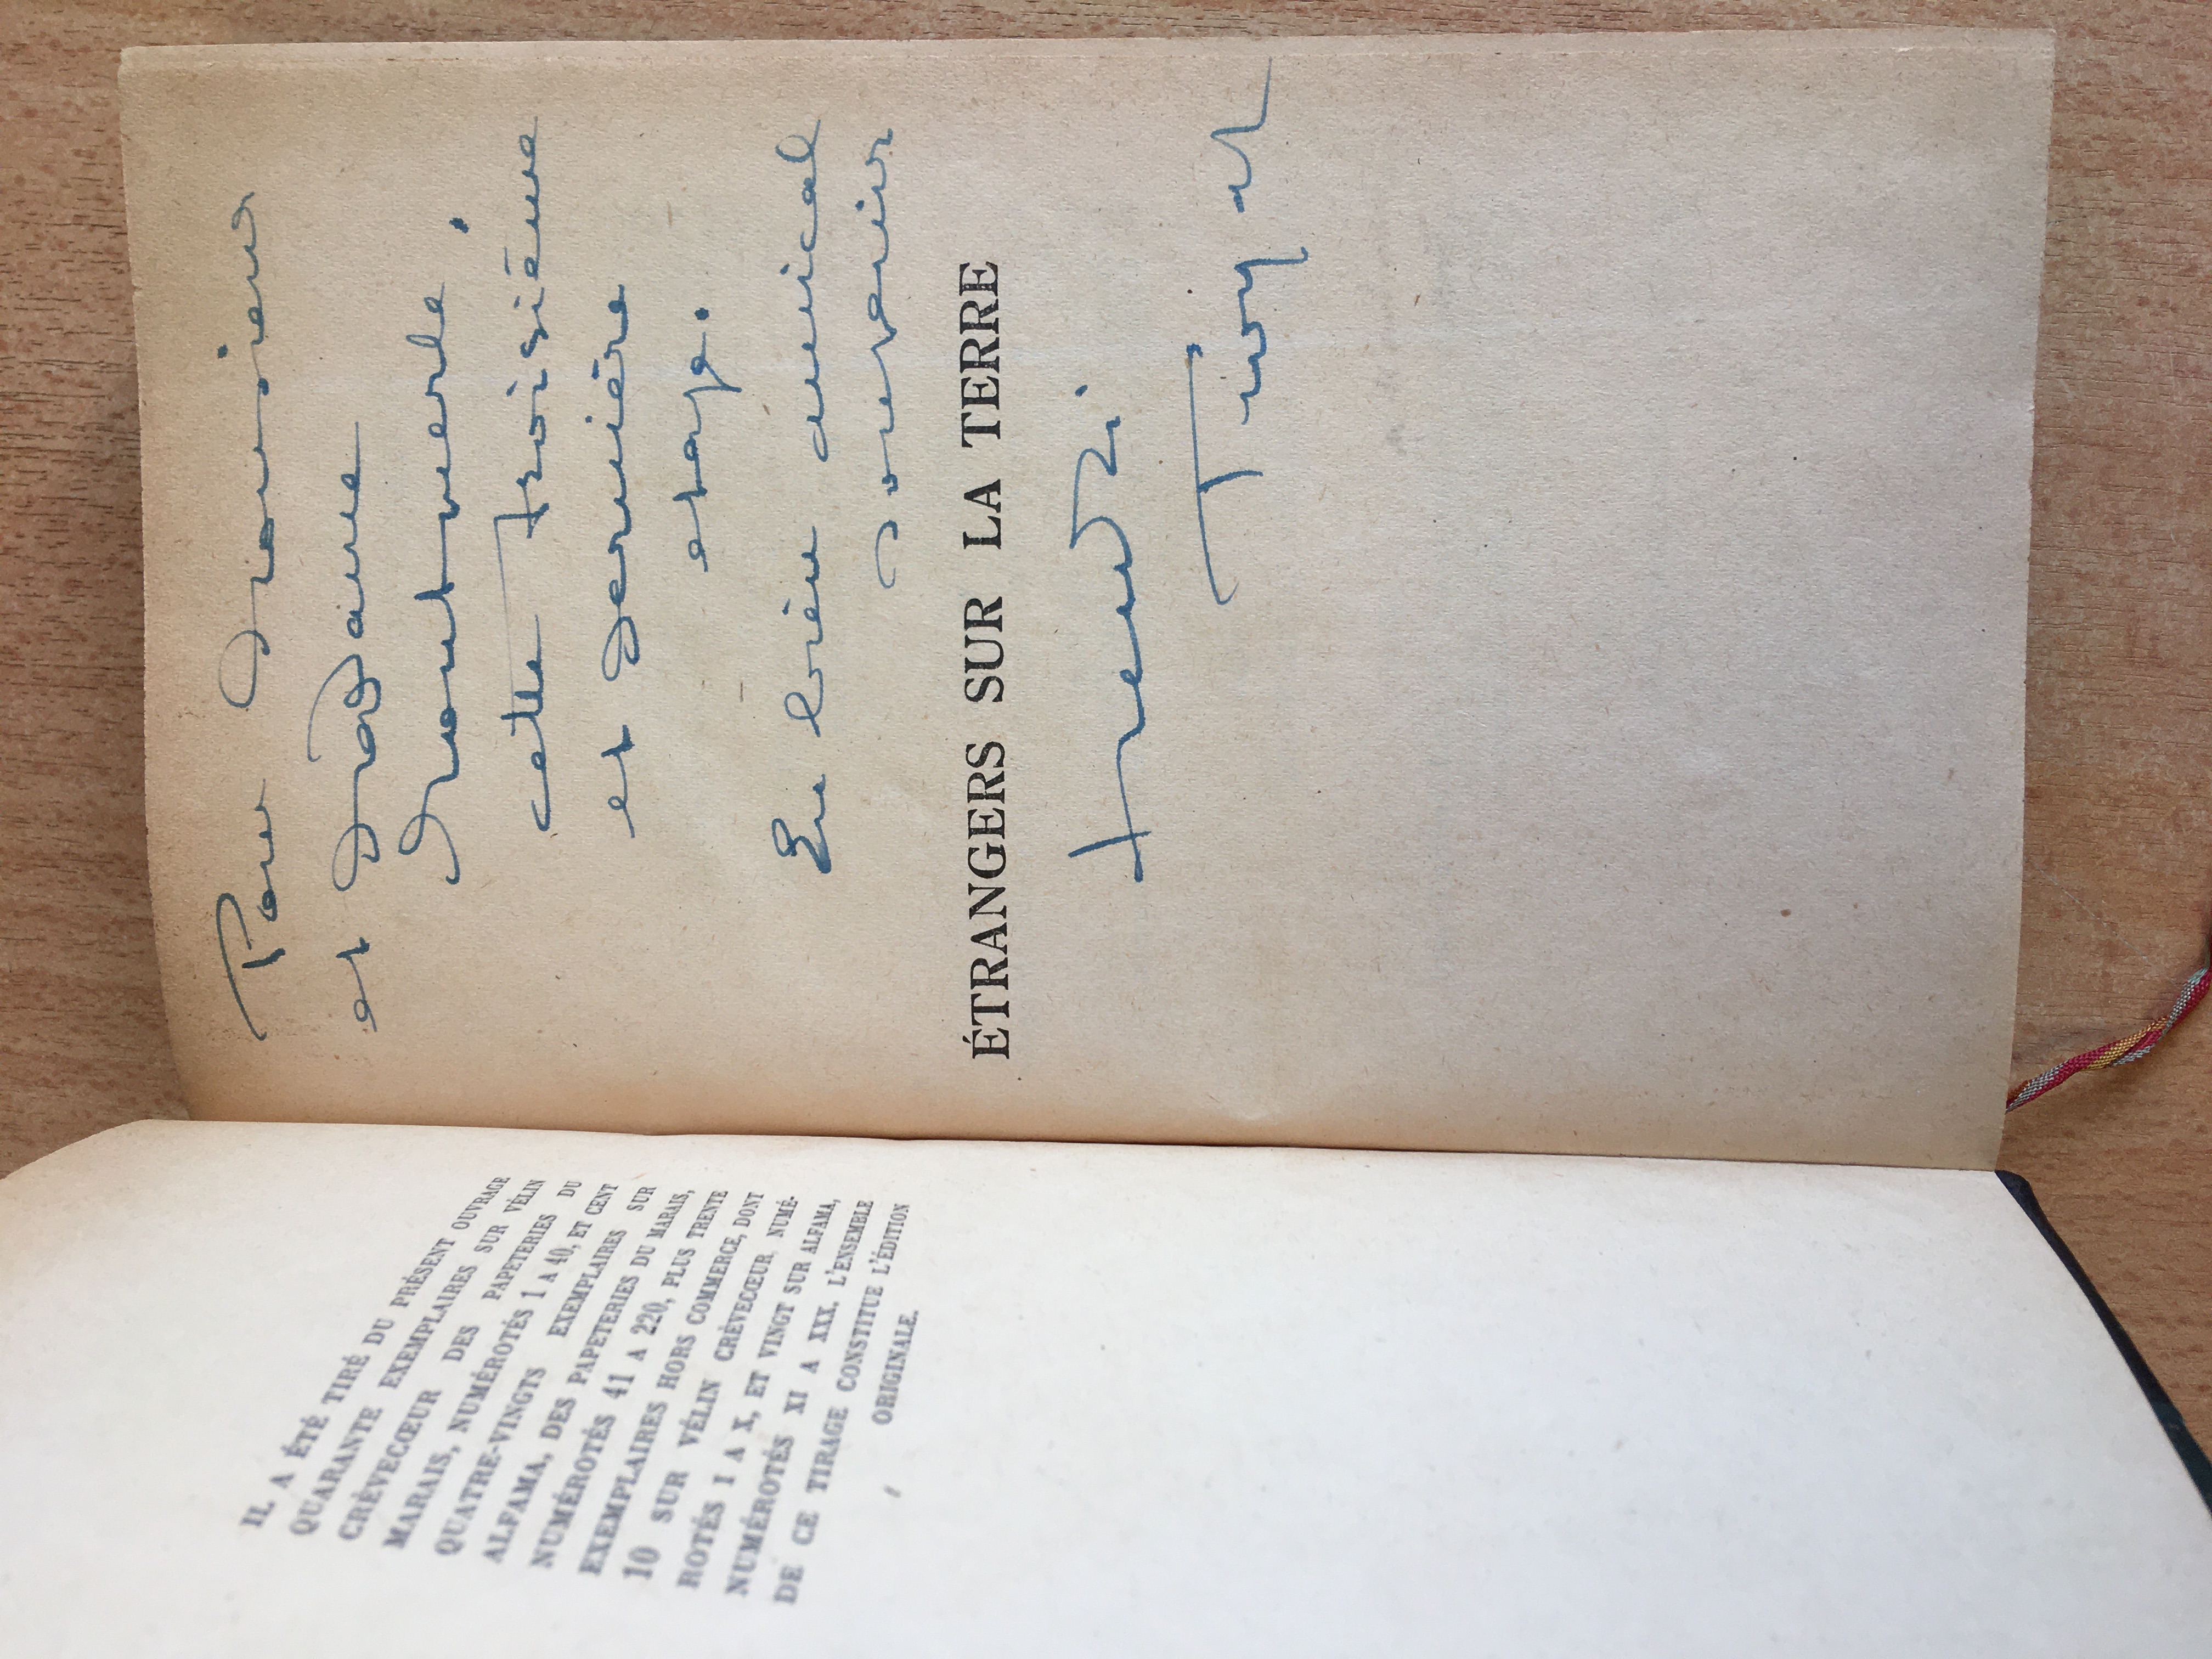 IL A ÉTÉ TIRÉ DU PRÉSENT OUVRAGE
QUARANTE EXEMPLAIRES SUR VÉLIN
CRÈVECŒUR DES PAPETERIES DU
MARAIS, NUMÉROTÉS 1 A 40, ET CENT
QUATRE-VINGTS EXEMPLAIRES SUR
ALFAMA, DES PAPETERIES DU MARAIS,
NUMÉROTÉS 41 A 220, PLUS TRENTE
EXEMPLAIRES HORS COMMERCE, DONT
10 SUR VÉLIN CRÈVECŒUR, NUMÉ-
ROTÉS I A X, ET VINGT SUR ALFAMA,
NUMÉROTÉS XI A XXX. L'ENSEMBLE
DE CE TIRAGE CONSTITUE L'ÉDITION
ORIGINALE.
Pour Monsieur
et Madame
cette troisième
et dernière
étape.
En bien amical
souvenir
ÉTRANGERS SUR LA TERRE
Henri
Troyat